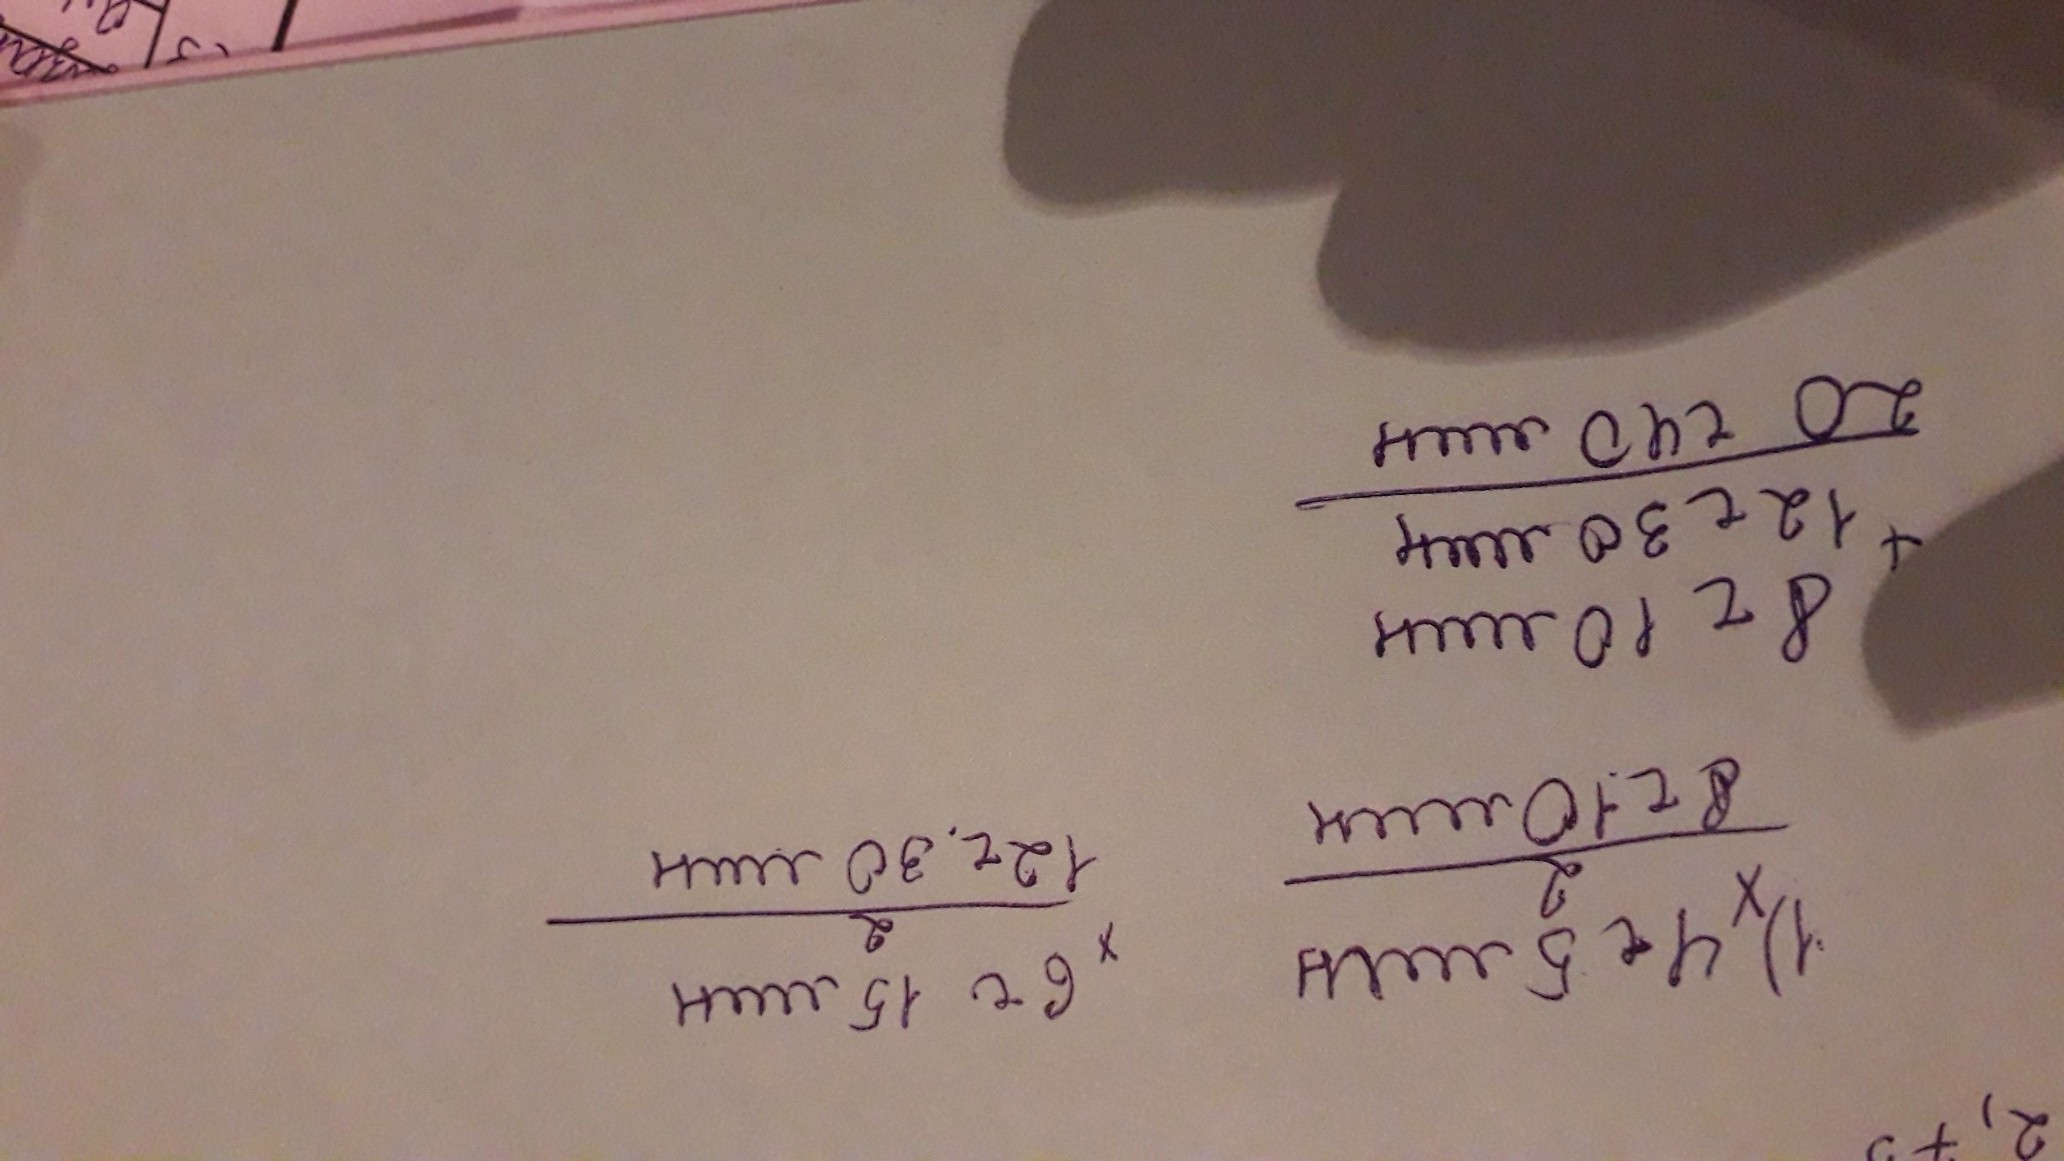 2,75
1) x 4 г 5 мин
2
8 г 10 мин
x 6 г 15 мин
2
12 г. 30 мин
8 г 10 мин
+ 12 г 30 мин
20 г 40 мин